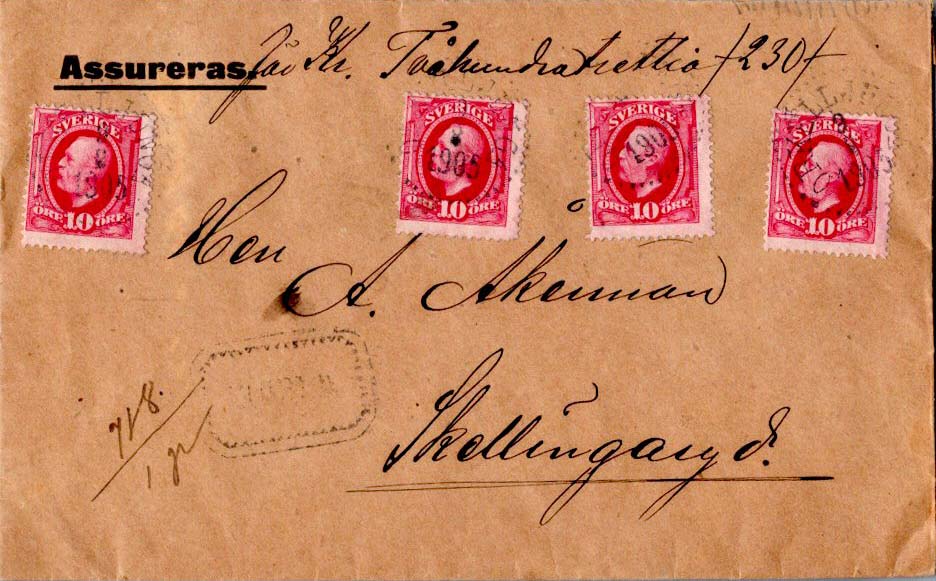 Assureras för Kr. Tvåhundratrettio /230/
SVERIGE 10 ÖRE ÖRE 1905
SVERIGE 10 ÖRE ÖRE 1905
SVERIGE 10 ÖRE ÖRE 190
SVERIGE 10 ÖRE ÖRE 1905
Herr
A. Åkerman
Skillingaryd.
718.
1 gr